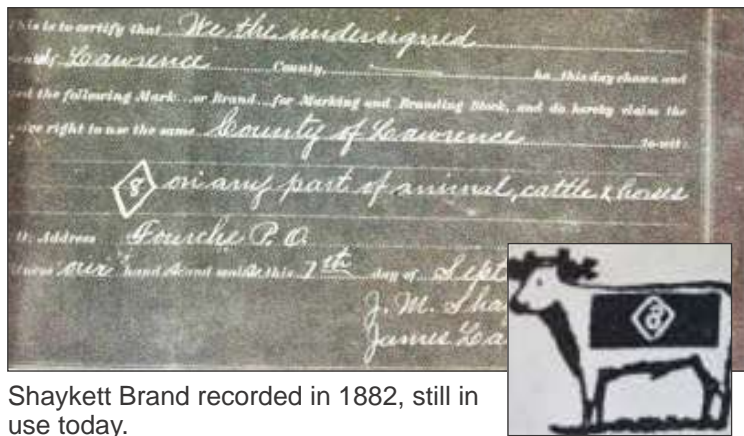 This is to certify that We the undersigned
Lawrence County, ha this day chosen and
the following Mark or Brand for Marking and Branding Stock, and do hereby claim the
right to use the same County of Lawrence to-wit:
8 on any part of animal, cattle & horses
Address Fourche P. O.
our hand and this 7th day of Sept
J. M. Sha
James La
8
Shaykett Brand recorded in 1882, still in
use today.